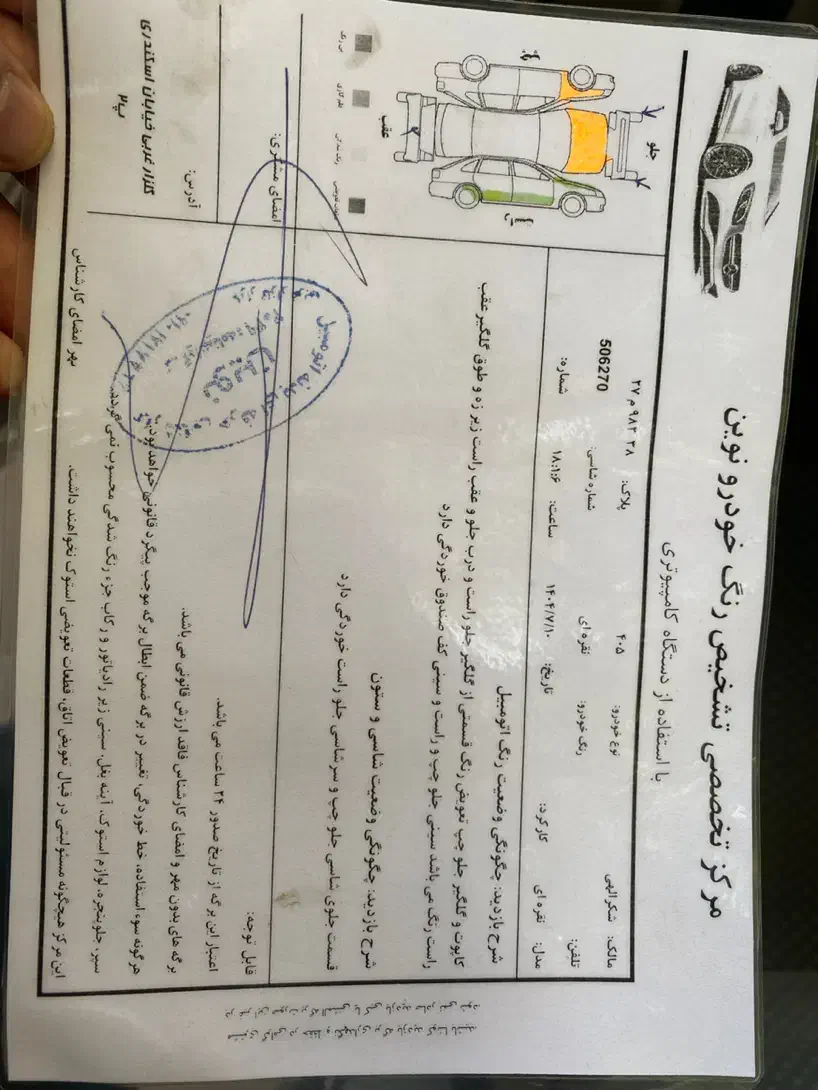 مرکز تخصصی تشخیص رنگ خودرو نوین
با استفاده از دستگاه کامپیوتری
مالک: شکرالهی
نوع خودرو: ۴۰۵
پلاک: ۳۸ ۹۸۲ م ۲۷
تلفن:
رنگ خودرو: نقره ای
شماره شاسی: 506270
مدل: نقره ای
کارکرد:
تاریخ: ۱۴۰۴/۷/۱۰
ساعت: ۱۸:۱:۶
شماره:
جلو
عقب
شرح بازدید: چگونگی وضعیت رنگ اتومبیل
کاپوت و گلگیر جلو چپ تعویض رنگ قسمتی از گلگیر جلو راست و درب جلو و عقب راست زیر زه و طوق گلگیر عقب
راست رنگ می باشد سینی جلو چپ و راست و سینی کف صندوق خوردگی دارد
شرح بازدید: چگونگی وضعیت شاسی و ستون
قسمت جلوی شاسی جلو چپ و سر شاسی جلو راست خوردگی دارد
امضای مشتری:
قابل توجه:
اعتبار این برگه از تاریخ صدور ۲۴ ساعت می باشد.
برگه های بدون مهر و امضای کارشناس فاقد ارزش قانونی می باشد.
هرگونه سوء استفاده، خط خوردگی، تغییر در برگه ضمن ابطال برگه موجب پیگرد قانونی خواهد بود.
سپر، جلوپنجره، لوازم استوک، آینه بغل، سینی زیر رادیاتور و رکاب جزء رنگ شدگی محسوب نمی گردد.
این مرکز هیچگونه مسئولیتی در قبال تعویض اتاق، قطعات تعویضی استوک نخواهند داشت.
مهر امضای کارشناس
آدرس:
گلزار غربی خیابان اسکندری
پ۲
اتومبیل